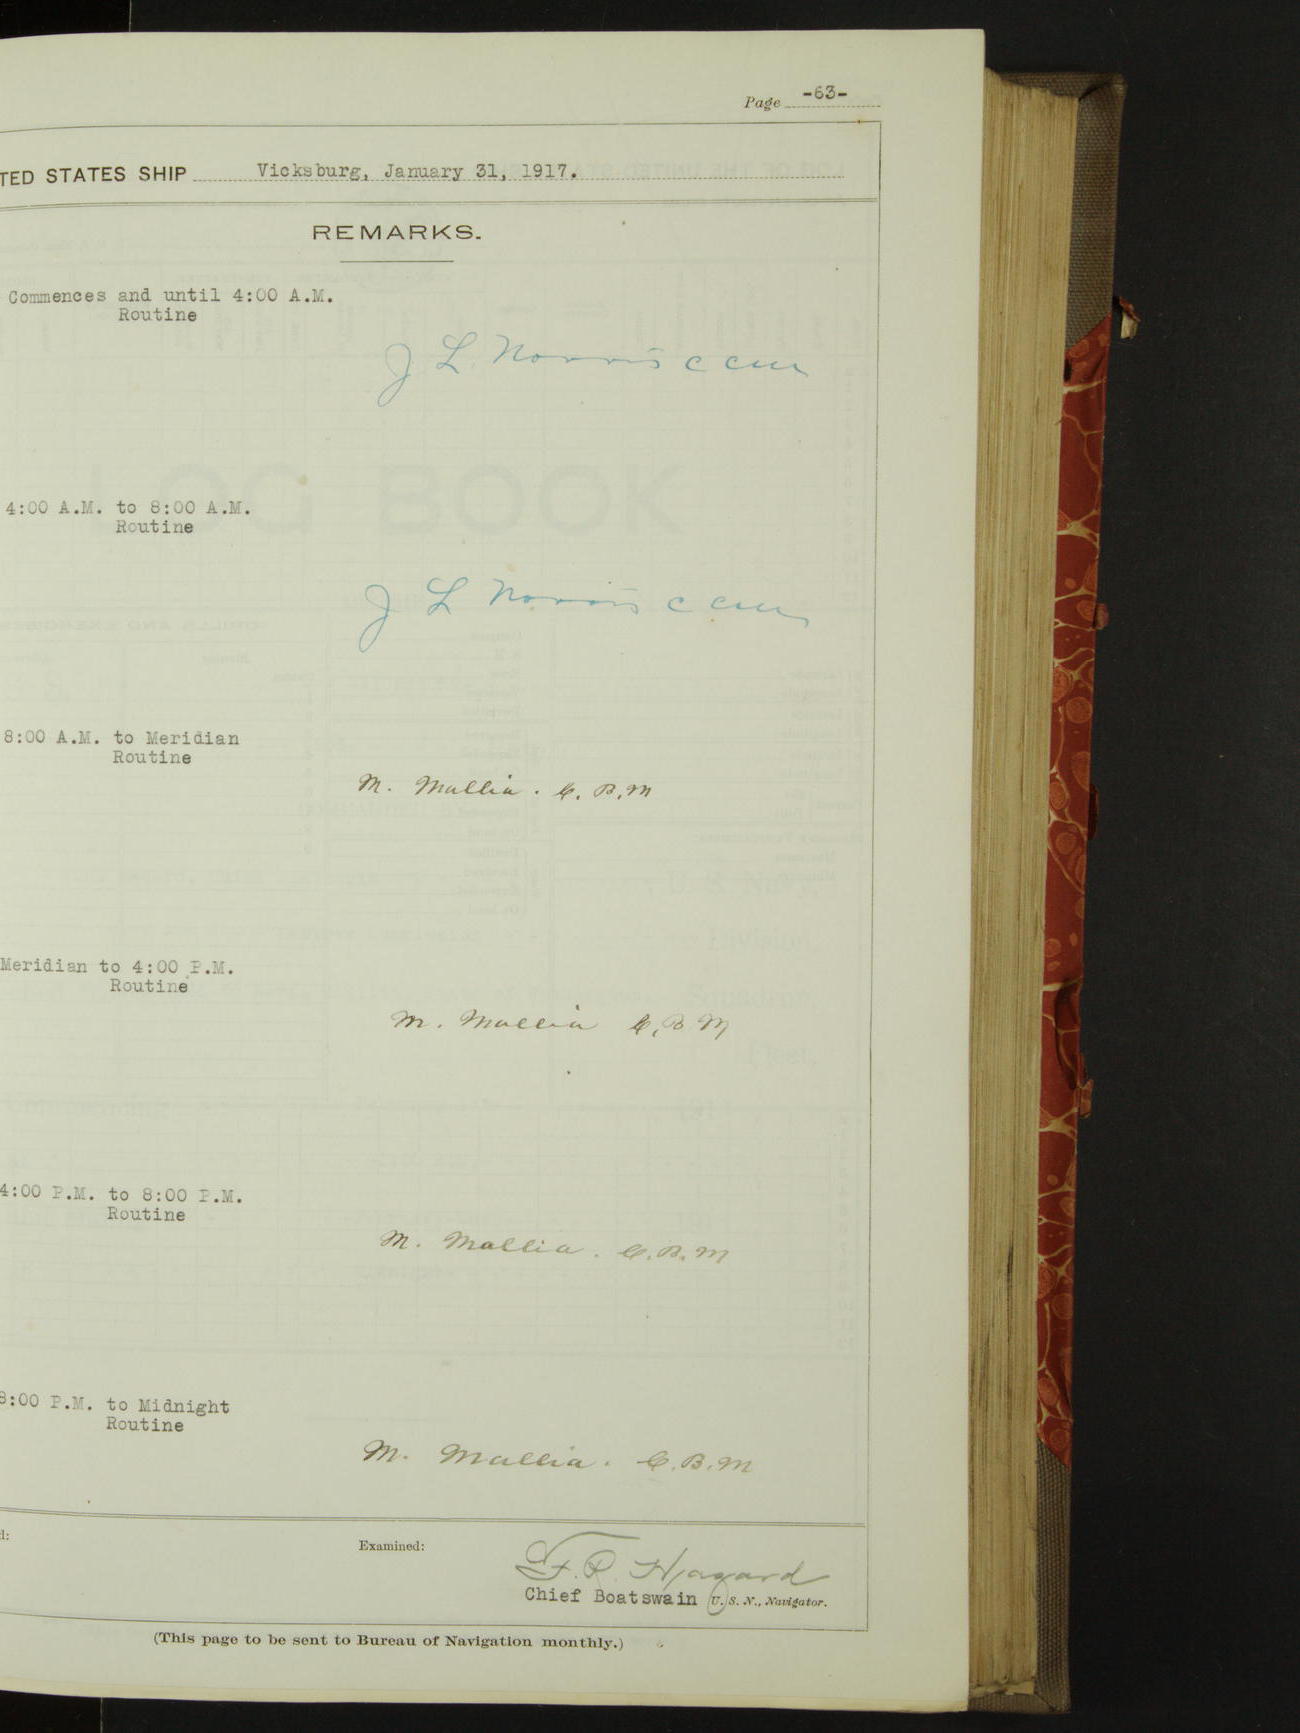 Page -63-
TED STATES SHIP Vicksburg, January 31, 1917.
REMARKS.
Commences and until 4:00 A.M.
Routine
J L Norris C C M
4:00 A.M. to 8:00 A.M.
Routine
J L Norris C C M
8:00 A.M. to Meridian
Routine
M. Mallia. C. B. M
Meridian to 4:00 P.M.
Routine
M. Mallia C. B M
4:00 P.M. to 8:00 P.M.
Routine
M. Mallia. C. B. M
8:00 P.M. to Midnight
Routine
M. Mallia. C. B. M
d: Examined:
F. R. Hazard
Chief Boatswain U. S. N., Navigator.
(This page to be sent to Bureau of Navigation monthly.)